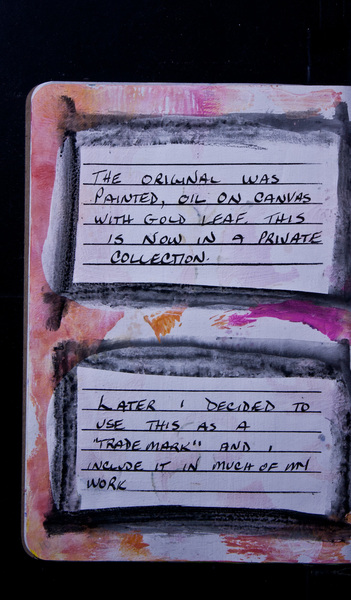 THE ORIGINAL WAS
PAINTED, OIL ON CANVAS
WITH GOLD LEAF. THIS
IS NOW IN A PRIVATE
COLLECTION.
LATER I DECIDED TO
USE THIS AS A
"TRADEMARK" AND I
INCLUDE IT IN MUCH OF MY
WORK